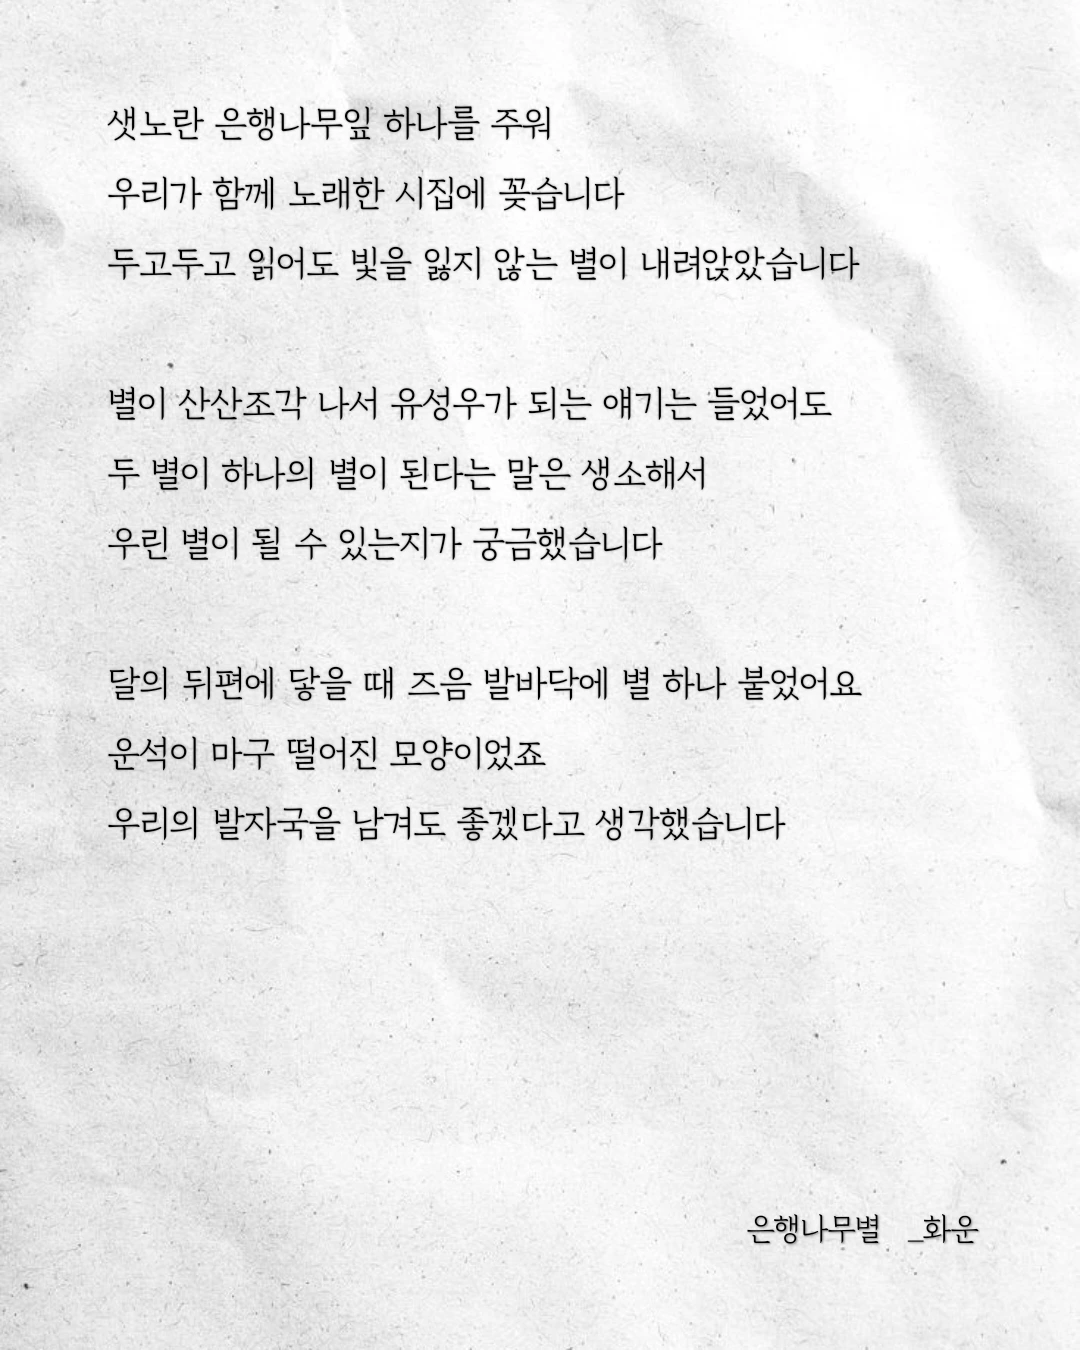 샛노란 은행나무잎 하나를 주워
우리가 함께 노래한 시집에 꽂습니다
두고두고 읽어도 빛을 잃지 않는 별이 내려앉았습니다
별이 산산조각 나서 유성우가 되는 얘기는 들었어도
두 별이 하나의 별이 된다는 말은 생소해서
우린 별이 될 수 있는지가 궁금했습니다
달의 뒤편에 닿을 때 즈음 발바닥에 별 하나 붙었어요
운석이 마구 떨어진 모양이었죠
우리의 발자국을 남겨도 좋겠다고 생각했습니다
은행나무별 _화운